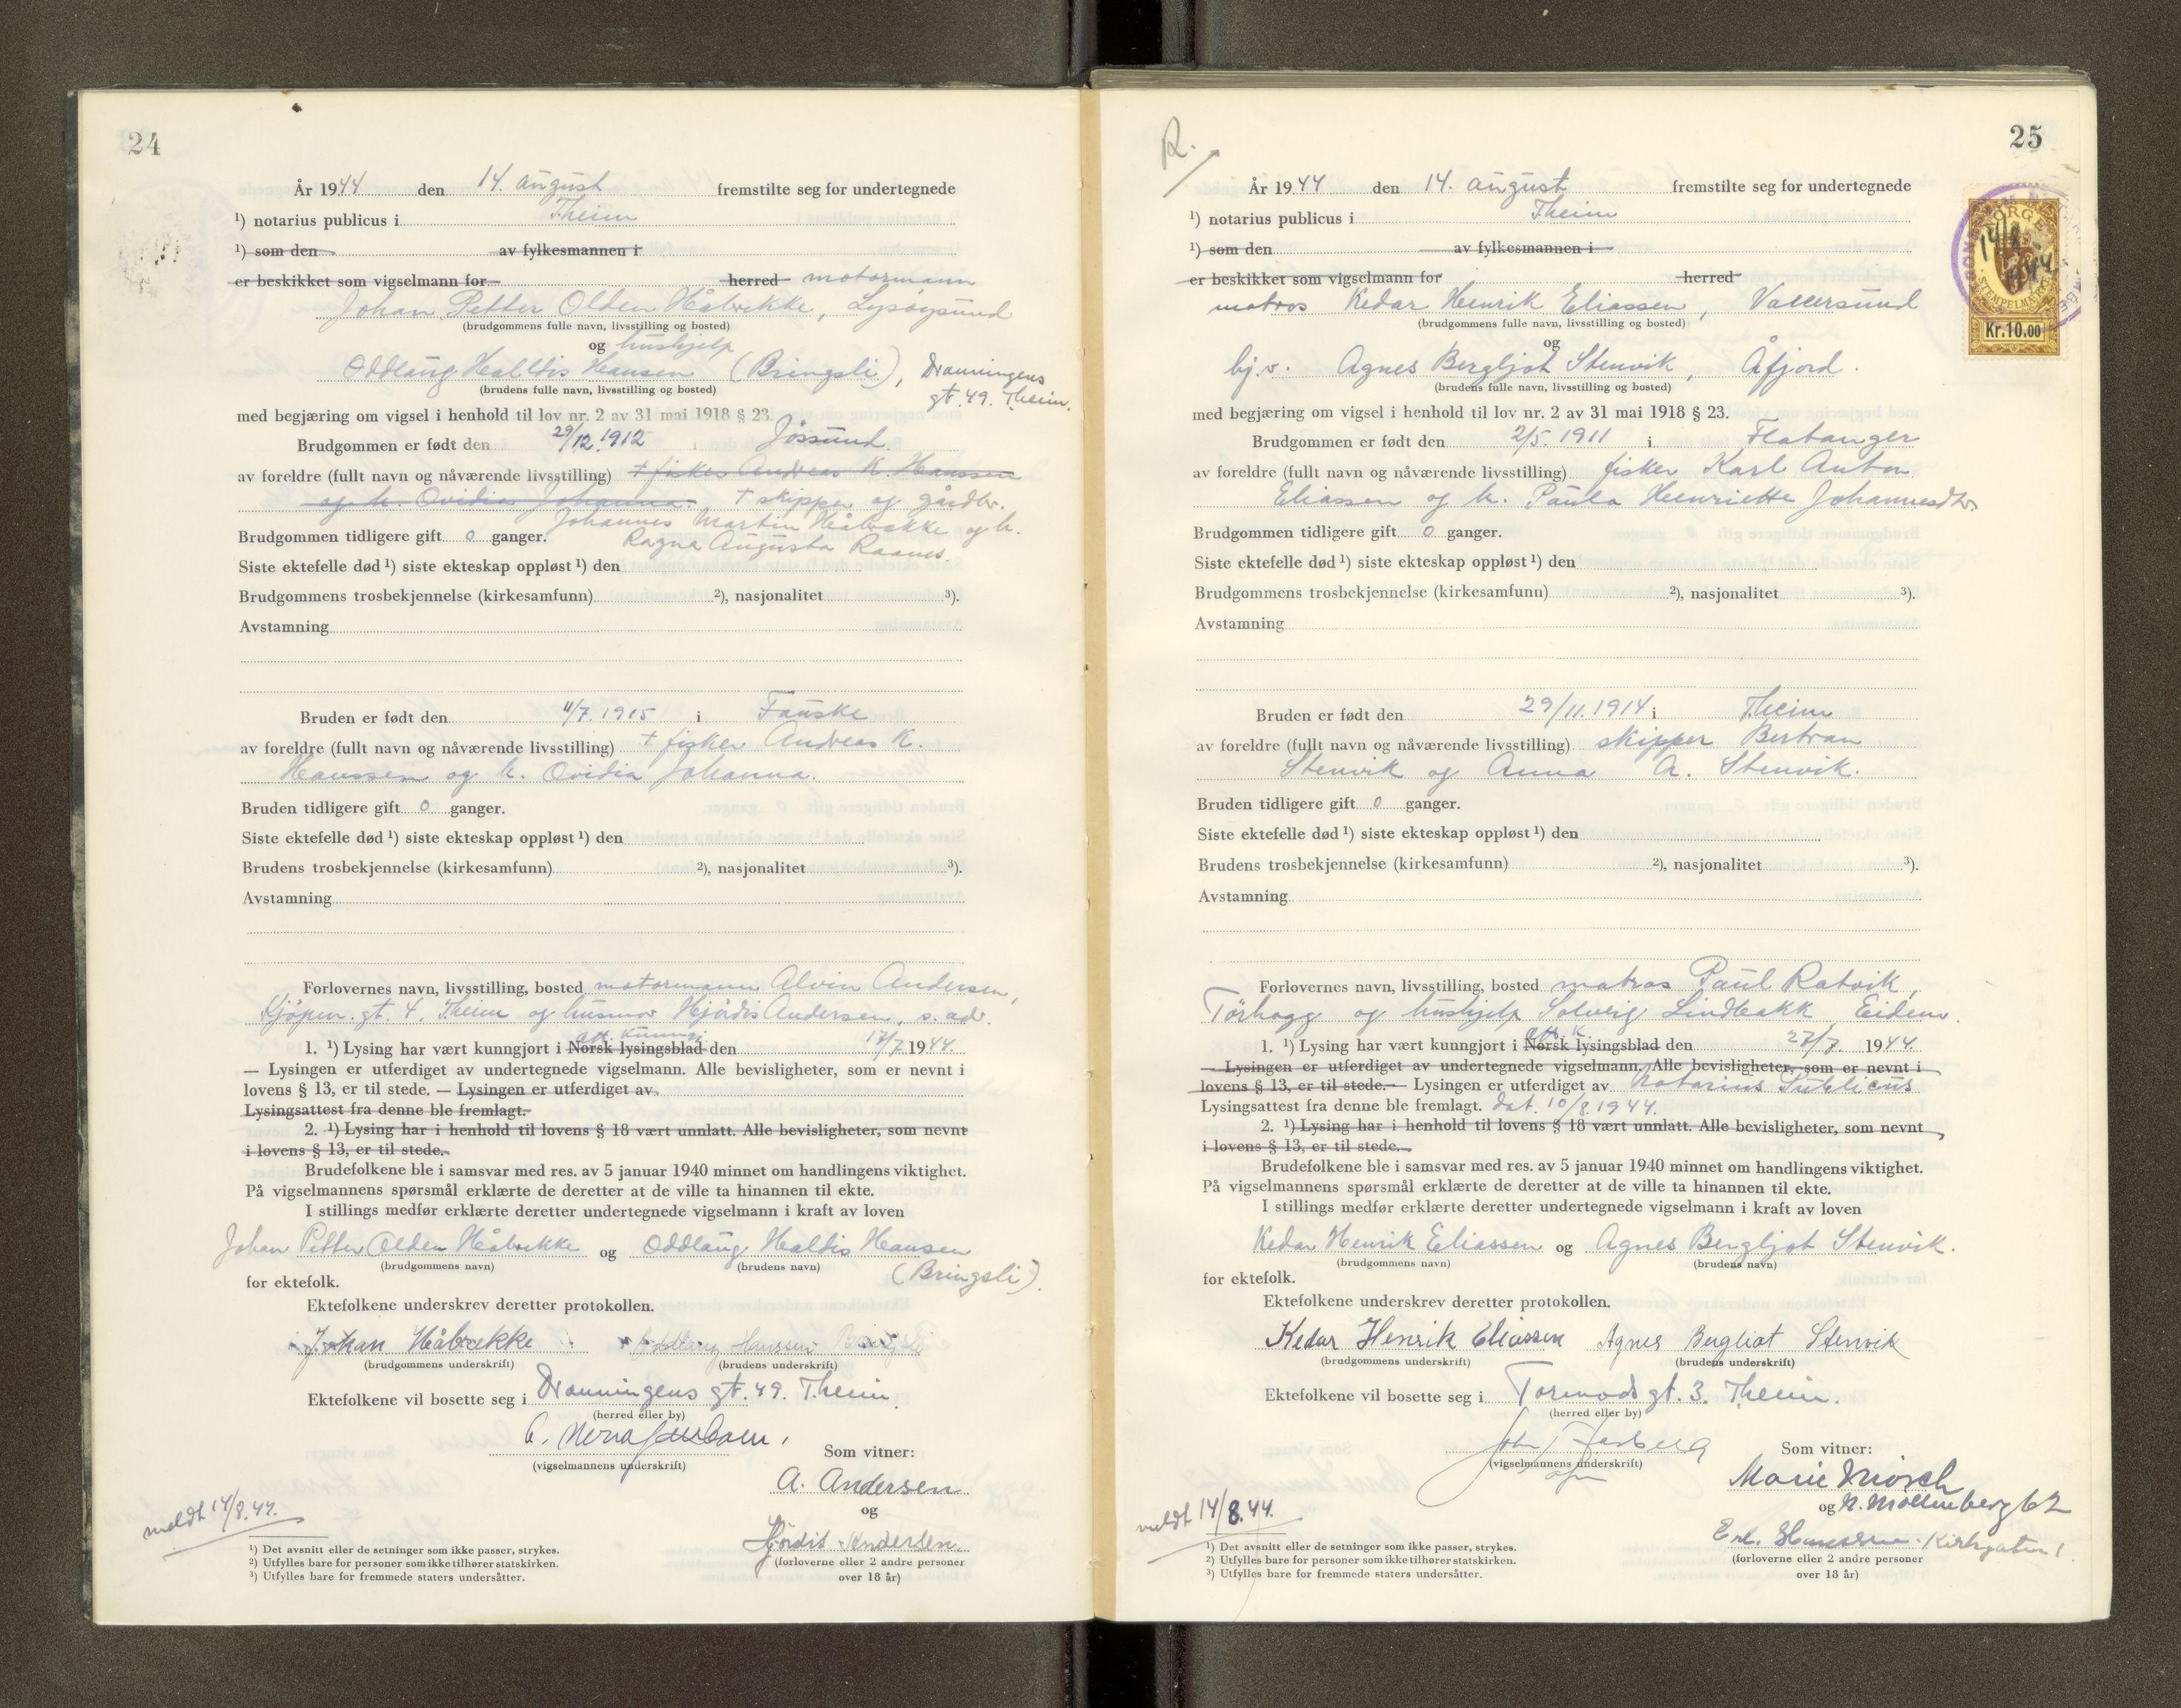 24
År 1944 den 14. august fremstilte seg for undertegnede
¹) notarius publicus i Theim
¹) som den av fylkesmannen i
er beskikket som vigselmann for herred motormann
Johan Petter Olden Håbrekke, Lysøysund
(brudgommens fulle navn, livsstilling og bosted)
og hushjelp
Oddlaug Halldis Hansen (Bringsli), Dronningens
(brudens fulle navn, livsstilling og bosted) gt. 49. Theim.
med begjæring om vigsel i henhold til lov nr. 2 av 31 mai 1918 § 23.
Brudgommen er født den 29/12.1912 i Jøssund.
av foreldre (fullt navn og nåværende livsstilling) + fisker Andreas K. Hanssen
og h. Ovidia Johanna. + skipper og gårdbr.
Johannes Martin Håbrekke og h.
Brudgommen tidligere gift 0 ganger. Ragna Augusta Raanes.
Siste ektefelle død ¹) siste ekteskap oppløst ¹) den
Brudgommens trosbekjennelse (kirkesamfunn) ²), nasjonalitet ³).
Avstamning
Bruden er født den 11/7.1915 i Fauske
av foreldre (fullt navn og nåværende livsstilling) + fisker Andreas K.
Hanssen og h. Ovidia Johanna.
Bruden tidligere gift 0 ganger.
Siste ektefelle død ¹) siste ekteskap oppløst ¹) den
Brudens trosbekjennelse (kirkesamfunn) ²), nasjonalitet ³).
Avstamning
Forlovernes navn, livsstilling, bosted motormann Alvin Andersen,
Kjøpm. gt. 4. Theim og husmor Hjørdis Andersen, s. adr.
1. ¹) Lysing har vært kunngjort i Norsk lysingsblad den 17/7 1944.
— Lysingen er utferdiget av undertegnede vigselmann. Alle bevisligheter, som er nevnt i
lovens § 13, er til stede. — Lysingen er utferdiget av
Lysingsattest fra denne ble fremlagt.
2. ¹) Lysing har i henhold til lovens § 18 vært unnlatt. Alle bevisligheter, som nevnt
i lovens § 13, er til stede.
Brudefolkene ble i samsvar med res. av 5 januar 1940 minnet om handlingens viktighet.
På vigselmannens spørsmål erklærte de deretter at de ville ta hinannen til ekte.
I stillings medfør erklærte deretter undertegnede vigselmann i kraft av loven
Johan Petter Olden Håbrekke og Oddlaug Haldis Hansen
(brudgommens navn) (brudens navn) (Bringsli).
for ektefolk.
Ektefolkene underskrev deretter protokollen.
Johan Håbrekke Oddlaug Hanssen Bringsli
(brudgommens underskrift) (brudens underskrift)
Ektefolkene vil bosette seg i Dronningens gt. 49. Theim
(herred eller by)
(vigselmannens underskrift)
Som vitner:
A. Andersen
og
Hjördis Andersen
(forloverne eller 2 andre personer
over 18 år)
meldt 14/8.44.
¹) Det avsnitt eller de setninger som ikke passer, strykes.
²) Utfylles bare for personer som ikke tilhører statskirken.
³) Utfylles bare for fremmede staters undersåtter.
25
R.
NORGE
STEMPELMERKE
Kr.10.00
År 1944 den 14. august fremstilte seg for undertegnede
¹) notarius publicus i Theim
¹) som den av fylkesmannen i
er beskikket som vigselmann for herred
matros Kedar Henrik Eliassen, Vallersund
(brudgommens fulle navn, livsstilling og bosted)
og
hj.v. Agnes Bergljot Stenvik, Åfjord.
(brudens fulle navn, livsstilling og bosted)
med begjæring om vigsel i henhold til lov nr. 2 av 31 mai 1918 § 23.
Brudgommen er født den 2/5.1911 i Flatanger
av foreldre (fullt navn og nåværende livsstilling) fisker Karl Anton
Eliassen og h. Paula Henriette Johannesdtr.
Brudgommen tidligere gift 0 ganger.
Siste ektefelle død ¹) siste ekteskap oppløst ¹) den
Brudgommens trosbekjennelse (kirkesamfunn) ²), nasjonalitet ³).
Avstamning
Bruden er født den 29/11.1914 i Theim
av foreldre (fullt navn og nåværende livsstilling) skipper Bertran
Stenvik og Anna A. Stenvik.
Bruden tidligere gift 0 ganger.
Siste ektefelle død ¹) siste ekteskap oppløst ¹) den
Brudens trosbekjennelse (kirkesamfunn) ²), nasjonalitet ³).
Avstamning
Forlovernes navn, livsstilling, bosted matros Paul Ratvik,
Tørhogg og hushjelp Solveig Lindbakk Eidem.
1. ¹) Lysing har vært kunngjort i Norsk lysingsblad den 27/7. 1944.
— Lysingen er utferdiget av undertegnede vigselmann. Alle bevisligheter, som er nevnt i
lovens § 13, er til stede. — Lysingen er utferdiget av Notarius Publicus
Lysingsattest fra denne ble fremlagt. dat. 10/8.1944.
2. ¹) Lysing har i henhold til lovens § 18 vært unnlatt. Alle bevisligheter, som nevnt
i lovens § 13, er til stede.
Brudefolkene ble i samsvar med res. av 5 januar 1940 minnet om handlingens viktighet.
På vigselmannens spørsmål erklærte de deretter at de ville ta hinannen til ekte.
I stillings medfør erklærte deretter undertegnede vigselmann i kraft av loven
Kedar Henrik Eliassen og Agnes Bergljot Stenvik.
(brudgommens navn) (brudens navn)
for ektefolk.
Ektefolkene underskrev deretter protokollen.
Kedar Henrik Eliassen Agnes Bergliot Stenvik
(brudgommens underskrift) (brudens underskrift)
Ektefolkene vil bosette seg i Tormods gt. 3. Theim.
(herred eller by)
(vigselmannens underskrift)
Som vitner:
Marie Mørch
og N. Møllenberg 62
Erl. Hanssen. Kirkegaten 1
(forloverne eller 2 andre personer
over 18 år)
meldt 14/8.44.
¹) Det avsnitt eller de setninger som ikke passer, strykes.
²) Utfylles bare for personer som ikke tilhører statskirken.
³) Utfylles bare for fremmede staters undersåtter.